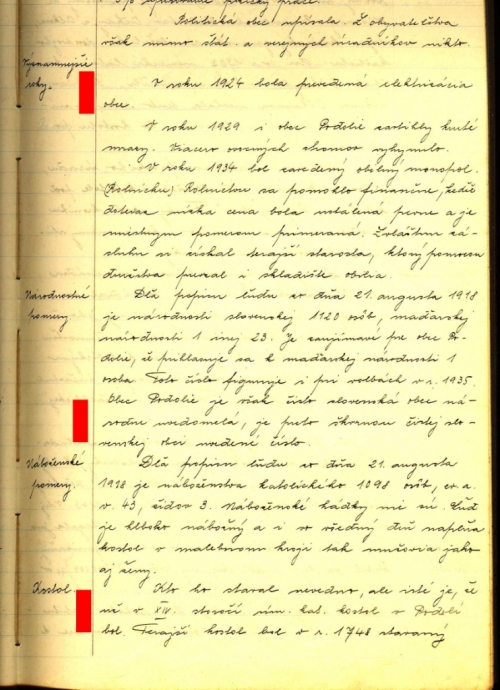 Politická obec upísala. Z obyvateľstva
však mimo štát. a verejných úradníkov nikto.
Významnejšie
roky.
V roku 1924 bola prevedená elektrizácia
obce.
V roku 1929 i obec Podolie zastihly kruté
mrazy. Viacero ovocných stromov vyhynulo.
V roku 1934 bol zavedený obilný monopol.
(Rolnícku) Rolníctvu sa pomohlo finančne, keďže
doteraz nízka cena bola ustálená pevne a je
miestnym pomerom primeraná. Zvláštnu zá-
sluhu si získal terajší starosta, ktorý pomocou
družstva previal i skladište obilia.
Národnostné
pomery.
Dľa popisu ľudu zo dňa 21. augusta 1918
je národnosti slovenskej 1120 osôb, maďarskej
národnosti 1 inej 23. Je zaujímavé pre obec Po-
dolie, že prihlasuje sa k maďarskej národnosti 1
osoba. Toto číslo figuruje i pri voľbách v r. 1935.
Obec Podolie je však čisto slovenská obec ná-
rodne uvedomelá, je preto škvrnou čistej slo-
venskej obci uvedené číslo.
Náboženské
pomery.
Dľa popisu ľudu zo dňa 21. augusta
1918 je náboženstva katolíckeho 1098 osôb, ev. a.
v. 43, židov 3. Náboženské hádky nie sú. Ľud
je hlboko nábožný a i vo všedný deň naplňa
kostol v malebnom kroji tak mužovia jako
aj ženy.
Kostol.
Kto ho staval nevedno, ale isté je, že
už v XIV. storočí rím. kat. kostol v Podolí
bol. Terajší kostol bol v r. 1748 stavaný